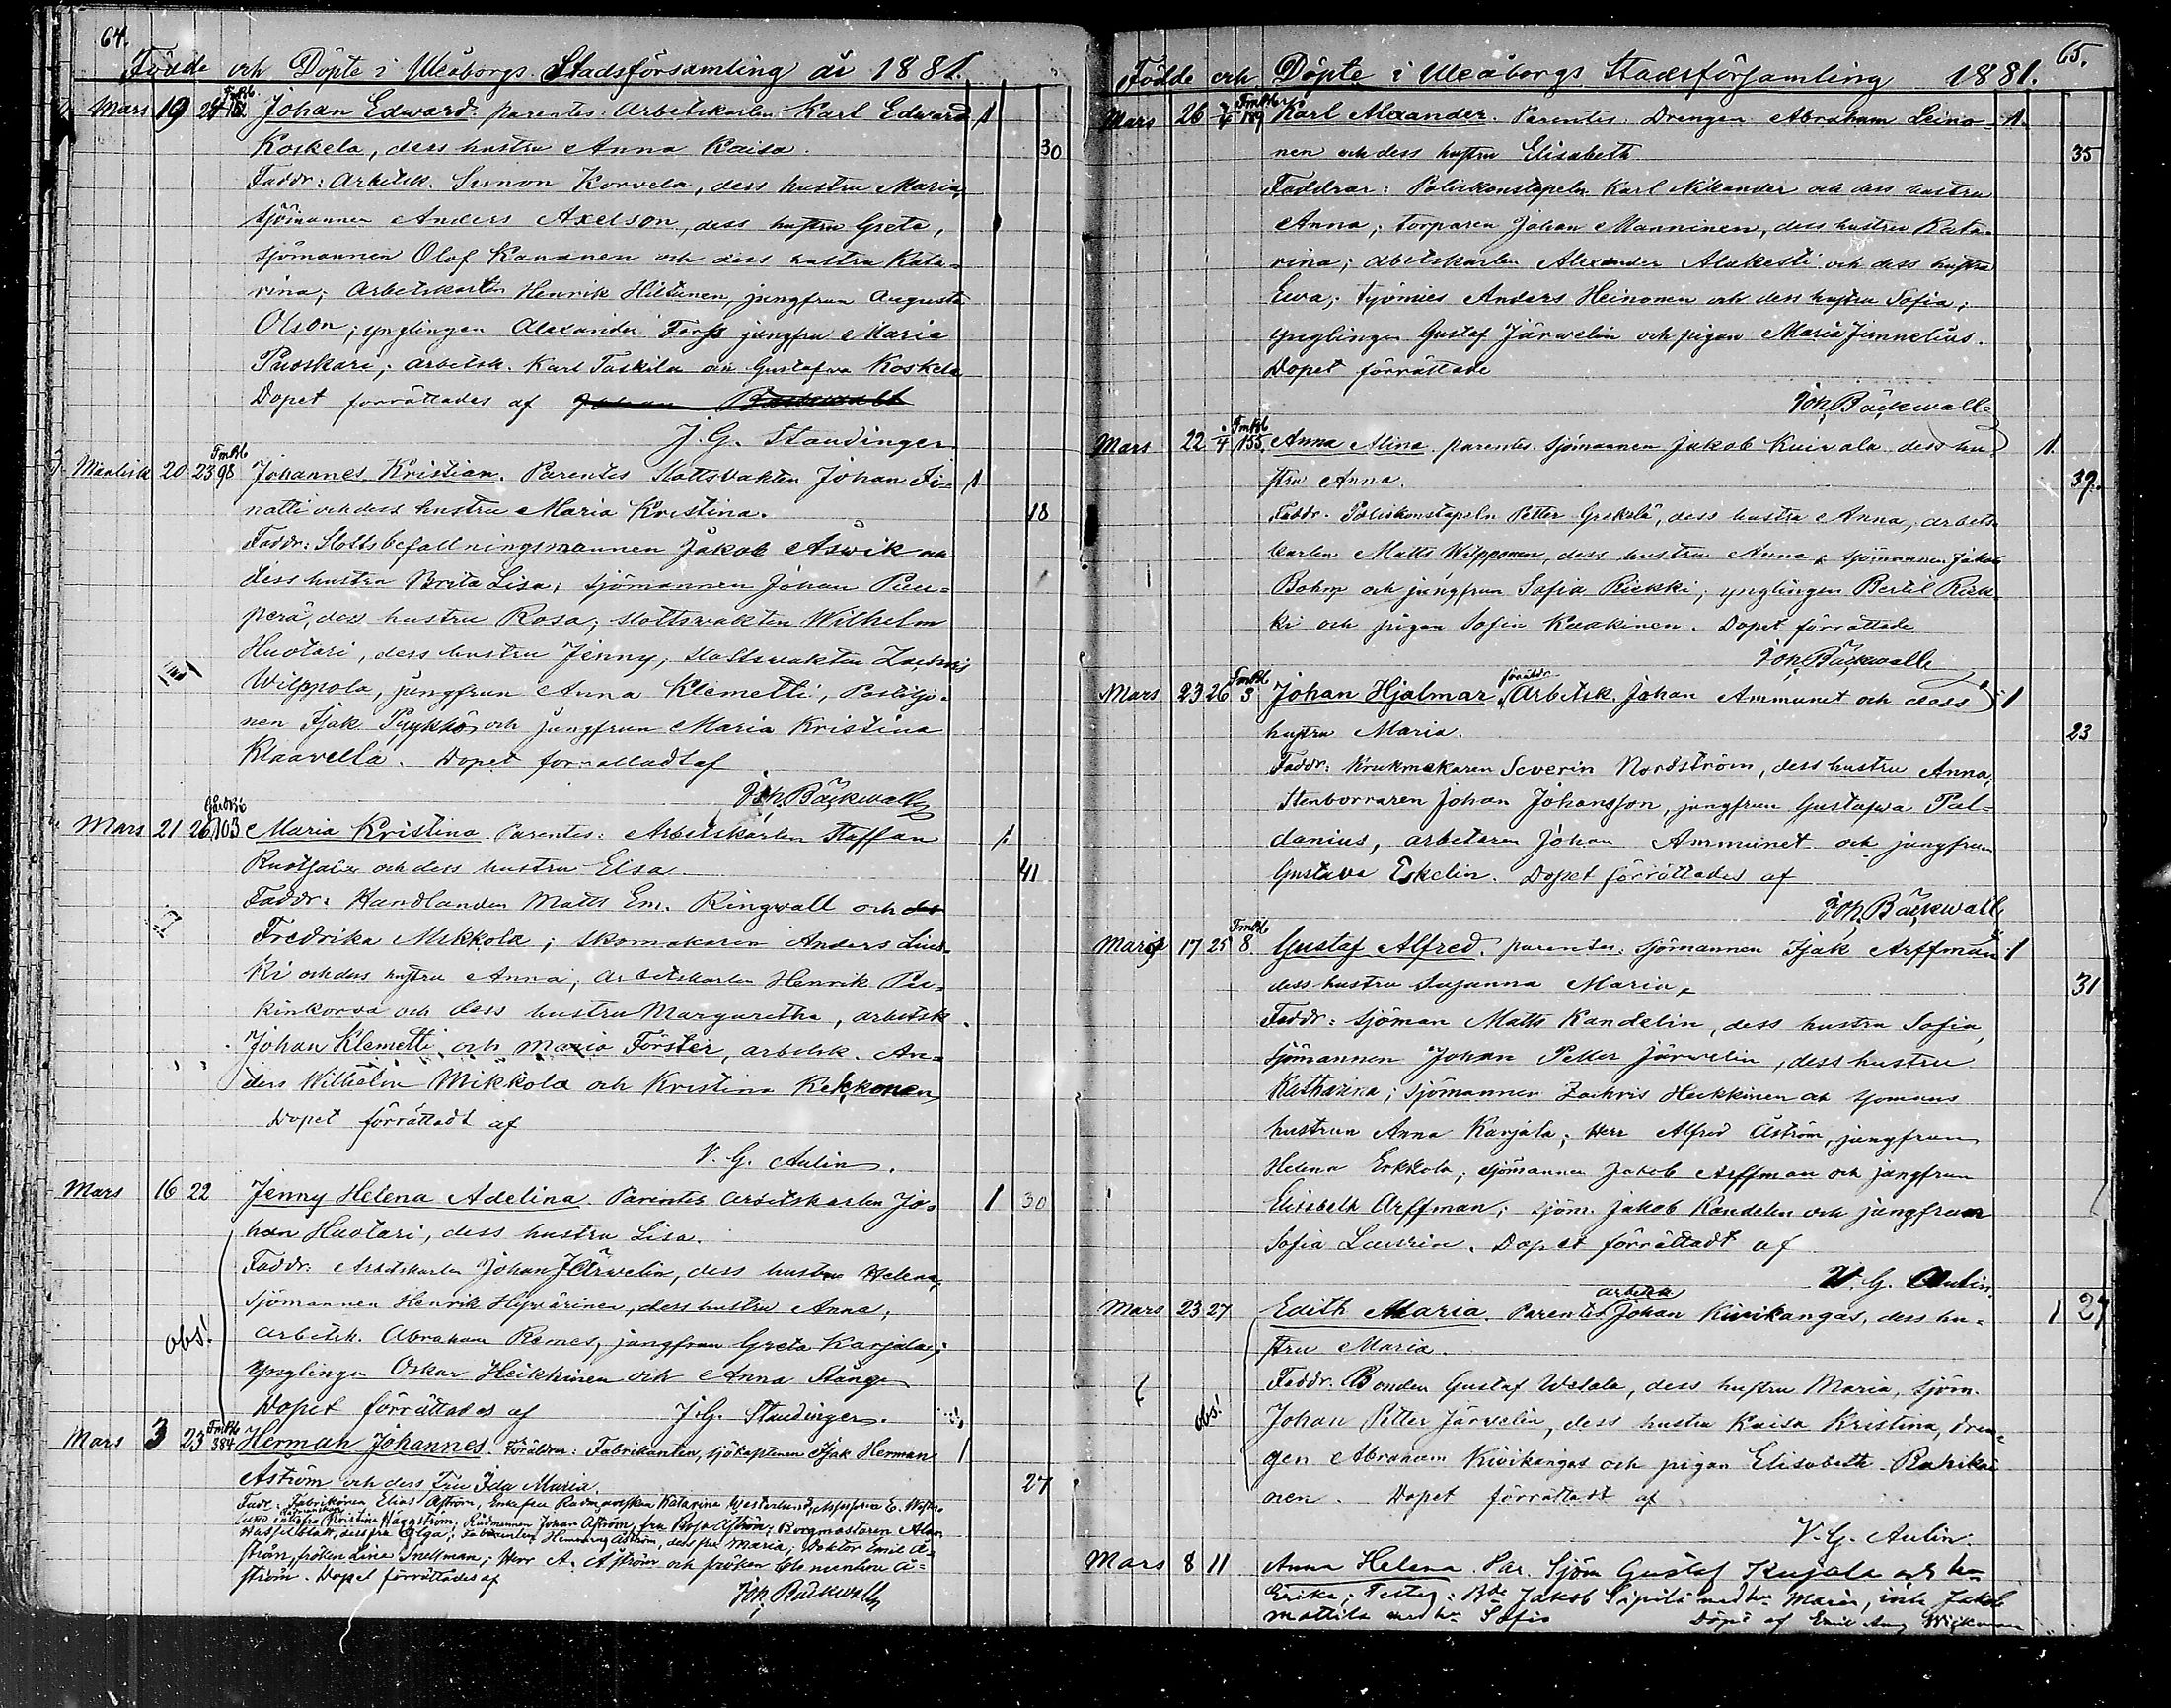 64.
Födde och Döpte i Uleåborgs Stadsförsamling år 1881.
Mars 19 28 Johan Edward. parentes. Arbetskarlen Karl Edward 1
Koskela, dess hustru Anna Kaisa. 30
Faddr: Arbetsk. Simon Korvela, dess hustru Maria,
sjömannen Anders Axelson, dess hustru Greta,
sjömannen Olof Kananen och dess hustru Kata-
rina; Arbetskarlen Henrik Hiltunen, jungfrun Augusta
Olson; ynglingen Alexander Forss jungfru Maria
Puoskari; arbetsk. Karl Taskila och Gustafva Koskela
Dopet förrättades af
J. G. Standinger
20 23 FmHb 98 Johannes Kristian. Parentes Slottsvakten Johan Fi- 1
natti och dess hustru Maria Kristina. 18
Faddr: Slottsbefallningsmannen Jakob Aswik och
dess hustru Brita Lisa; sjömannen Johan Puu-
perä, dess hustru Rosa; slottsvakten Wilhelm
Huotari, dess hustru Jenny, slottsvakten Zachris
Wilppola, jungfrun Anna Klemetti, Postiljo-
nen Isak Pyykkö och jungfrun Maria Kristina
Klaavella. Dopet förrättadt af
Joh. Bäckwall
Mars 21 26 103 Maria Kristina. Parentes: Arbetskarlen Staffan 1
och dess hustru Elsa 41
Faddr: Handlanden Matts Em. Ringwall och
Fredrika Mikkola; skomakaren Anders Lius-
ki och dess hustru Anna; arbetskarlen Henrik Pel-
kinkorva och dess hustru Margaretha, arbetsk.
Johan Klemetti och Maria Förster, arbetsk. An-
ders Wilhelm Mikkola och Kristina Kekkonen
Dopet förrättadt af
V. G. Aulin.
Mars 16 22 Jenny Helena Adelina. Parentes arbetskarlen Jo- 1 30
han Huotari, dess hustru Lisa.
Faddr: Arbetskarlen Johan Järwelin, dess hustru Helena,
Sjömannen Henrik Hyvärinen, dess hustru Anna,
obs! arbetsk. Abraham Remes, jungfrun Greta Karjala;
ynglingen Oskar Heikkinen och Anna Stånge
Dopet förrättades af J. G. Standinger.
Mars 3 23 FmHb 384 Herman Johannes. Föräldrar: Fabrikanten, sjökaptenen Isak Herman 1
Åström och dess Fru Ida Maria. 27
Fadr: Fabrikören Elias Åström, Enkefru Katarina Westerlund,
Kristina Häggström; Rådmannen Johan Åström, fru Åström; Borgmästaren
Hasselblatt, dess fru Olga; Åström, dess fru Maria; Doktor Emil Å-
ström, fröken Line Snellman; Herr A. Åström och fröken Clementine Å-
ström. Dopet förrättades af
Joh. Bäckwall
65.
Födde och Döpte i Uleåborgs Stadsförsamling 1881.
Mars 26 FmHb 189 Karl Alexander. Parentes. Drengen Abraham Leino- 1.
nen och dess hustru Elisabeth 35
Faddrar: Poliskonstapeln Karl Nikander och dess hustru
Anna; torparen Johan Manninen, dess hustru Kata-
rina; abetskarlen Alexander Alakesti och dess hustru
Ewa; työmies Anders Heinonen och dess hustru Sofia;
ynglingen Gustaf Järwelin och pigan Maria Junnelius.
Dopet förrättade
Joh. Bäckwall
Mars 22 FmHb 155. Anna Alina. parentes. sjömannen Jakob Kuivala dess hu- 1.
stru Anna. 39.
Faddr. Poliskonstapeln Petter Grekelä, dess hustru Anna; arbets-
karlen Matts Wilpponen, dess hustru Anna, sjömannen Jakob
Bohm och jungfrun Sofia Riekki; ynglingen Bertil Riek-
ki och pigan Sofia Kaakkinen. Dopet förrättade
Joh. Bäckwall
Mars 23 26 FmHb 3 Johan Hjalmar. Arbetsk. Johan Ammunet och dess 1
hustru Maria. 23
Faddr: Krukmakaren Severin Nordström, dess hustru Anna,
Stenborraren Johan Johansson, jungfrun Gustafva Pal-
danius, arbetaren Johan Ammunet och jungfrun
Gustava Eskelin. Dopet förrättades af
Joh. Bäckwall
Mars 17 25 FmHb 8. Gustaf Alfred. parentes: sjömannen Isak Arffman 1
dess hustru Susanna Maria. 31
Faddr: Sjöman Matts Kandelin, dess hustru Sofia,
Sjömannen Johan Petter Järwelin, dess hustru
Katharina; Sjömannen Zachris Heikkinen och sjömans
hustrun Anna Karjala; Herr Alfred Åström, jungfrun
Helena Erkkola; sjömannen Jakob Arffman och jungfrun
Elisabeth Arffman; sjöm. Jakob Kandelin och jungfrun
Sofia Laurin. Dopet förrättadt af
V. G. Aulin.
Mars 23 27 Edith Maria. Parentes arbetsk Johan Kiwikangas, dess hu- 1 27
stru Maria.
Faddr. Bonden Gustaf Wetola, dess hustru Maria, sjöm.
obs! Johan Petter Järvelin, dess hustru Kaisa Kristina, dren-
gen Abraham Kiwikangas och pigan Elisabeth Rahikai
nen. Dopet förrättadt af
V. G. Aulin.
Mars 8 11 Anna Helena. Par. Sjöm Gustaf Kujala och h:u
Erika; Jakob Sipilä med h:u Maria, Jakob
Mattila med h:u Sofia Döpt af Emil Aug Wichmann